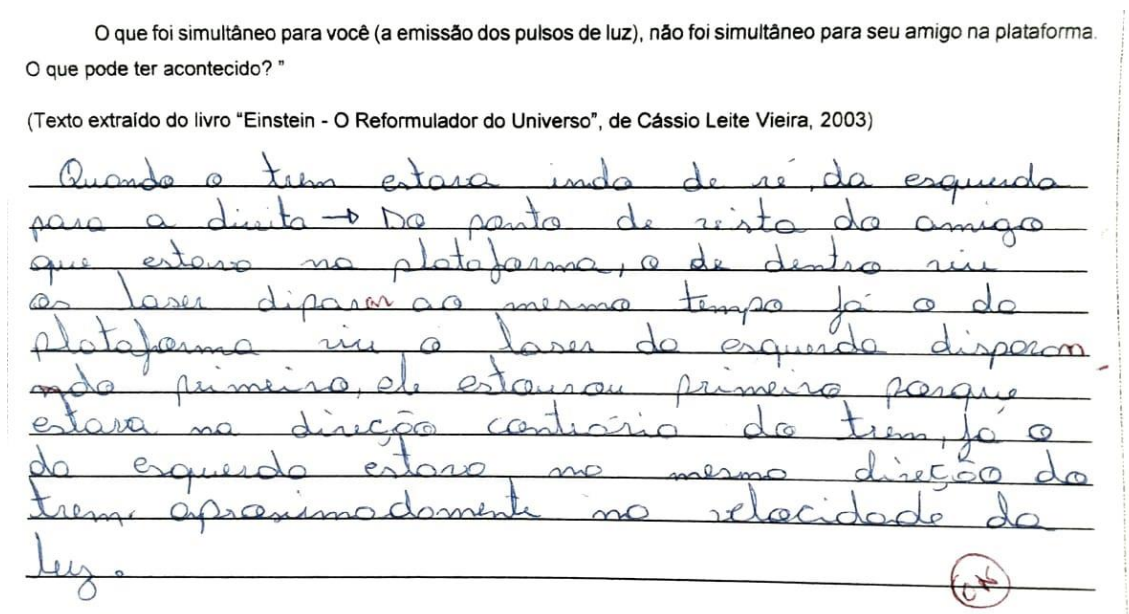 O que foi simultâneo para você (a emissão dos pulsos de luz), não foi simultâneo para seu amigo na plataforma.
O que pode ter acontecido? "
(Texto extraído do livro "Einstein - O Reformulador do Universo", de Cássio Leite Vieira, 2003)
Quando o trem estava indo de ré, da esquerda
para a direita → Do ponto de vista do amigo
que estava na plataforma, o de dentro viu
os laser diparar ao mesmo tempo já o da
plataforma viu o laser da esquerda disparan
ndo primeiro, ele estourou primeiro porque
estava na direção contrário do trem, já o
da esquerda estava na mesma direção do
trem. aproximadamente na velocidade da
luz.